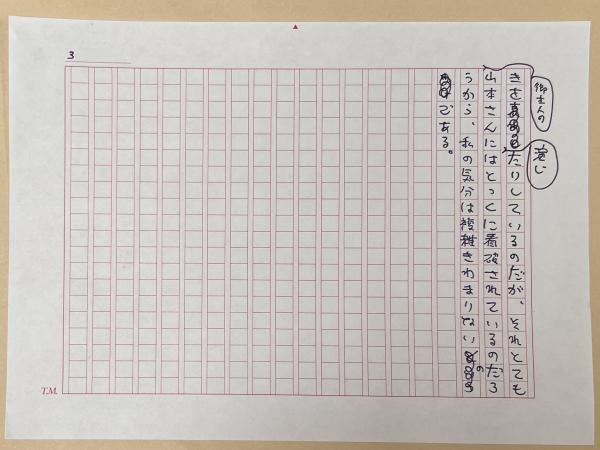 3
御主人の
装い
きをたりしているのだが、それとても
山本さんにはとっくに看破されているのだろ
うから、私の気分は複雑きわまりないの
である。
T.M.